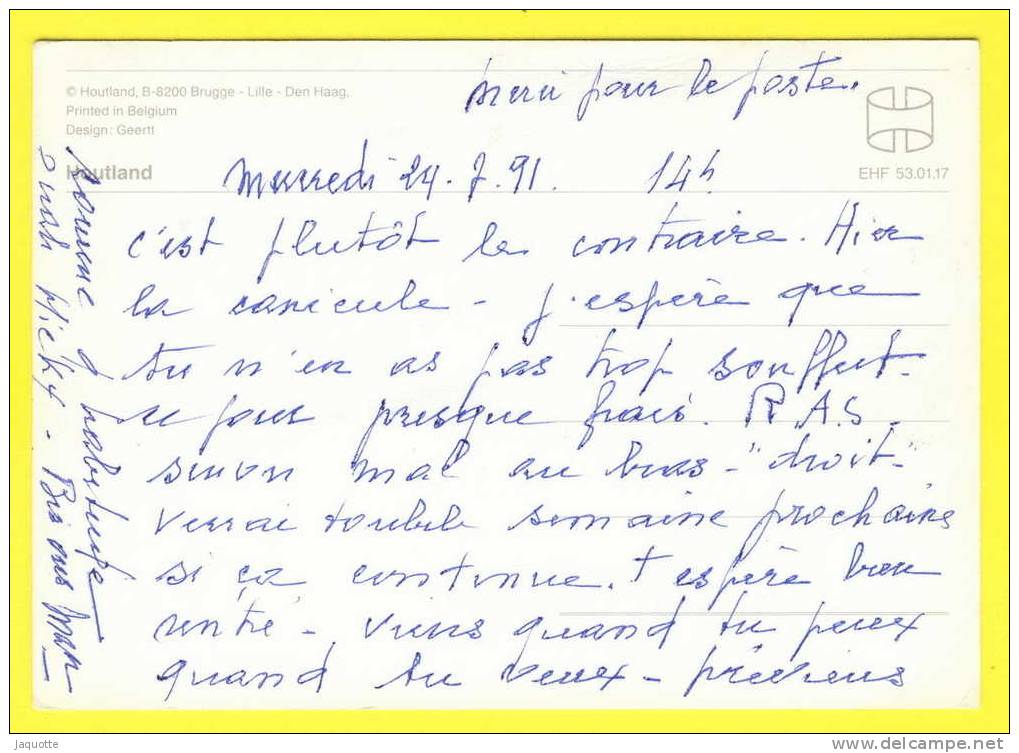 merci pour le poste.
© Houtland, B-8200 Brugge - Lille - Den Haag.
Printed in Belgium
Design: Geertl
Houtland
EHF 53.01.17
mercredi 24.7.91. 14h
c'est plutôt le contraire. Hier
la canicule - j'espère que
tu n'en as pas trop souffert.
ce jour presque frais. R.A.S.
sinon mal au bras - "droit"
verrai toubib semaine prochaine
si ça continue. t espère bien
rentré - viens quand tu peux
quand tu veux - préviens
comme d'habitude
Micky - Bisous Man
Jaquotte
www.delcampe.net